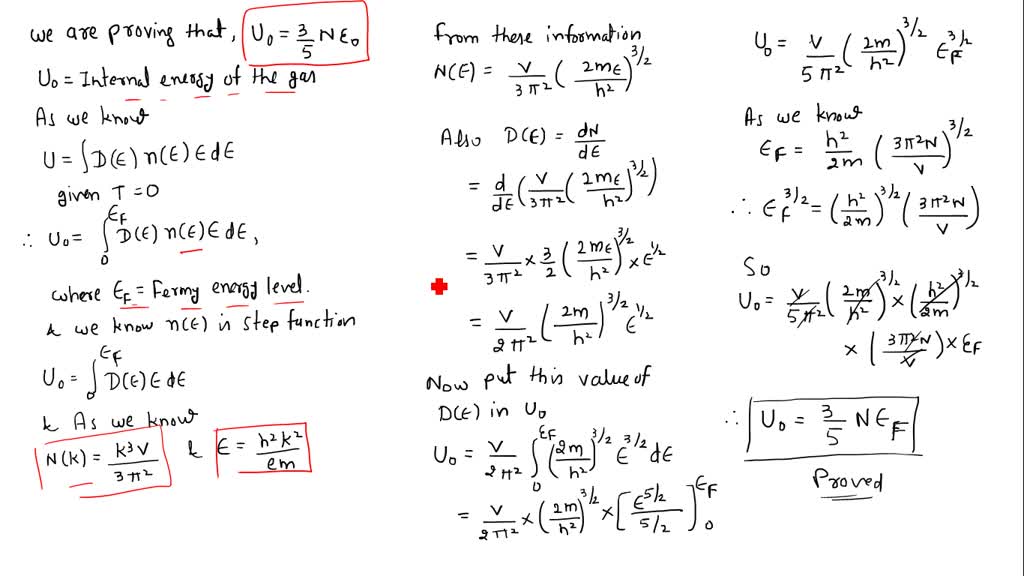 we are proving that, U₀ = 3/5 N ε₀
U₀ = Internal energy of the gas
As we know
U = ∫ D(ε) n(ε) ε dε
given T = 0
∴ U₀ = ∫₀^εF D(ε) n(ε) ε dε,
where εF = Fermy energy level.
& we know n(ε) is step function
U₀ = ∫₀^εF D(ε) ε dε
& As we know
N(k) = k³V / 3π² & ε = h²k² / em
from these information
N(ε) = V/3π² (2mε/h²)^3/2
Also D(ε) = dN/dε
= d/dε (V/3π² (2mε/h²)^3/2)
= V/3π² × 3/2 (2mε/h²)^3/2 × ε^1/2
= V/2π² (2m/h²)^3/2 ε^1/2
Now put this value of
D(ε) in U₀
U₀ = V/2π² ∫₀^εF (2m/h²)^3/2 ε^3/2 dε
= V/2π² × (2m/h²)^3/2 × [ε^5/2 / 5/2]₀^εF
U₀ = V/5π² (2m/h²)^3/2 εF^3/2
As we know
εF = h²/2m (3π²N/V)^3/2
∴ εF^3/2 = (h²/2m)^3/2 (3π²N/V)
So
U₀ = V/5π² (2m/h²)^3/2 × (h²/2m)^3/2
× (3π²N/V) × εF
∴ U₀ = 3/5 N εF
Proved